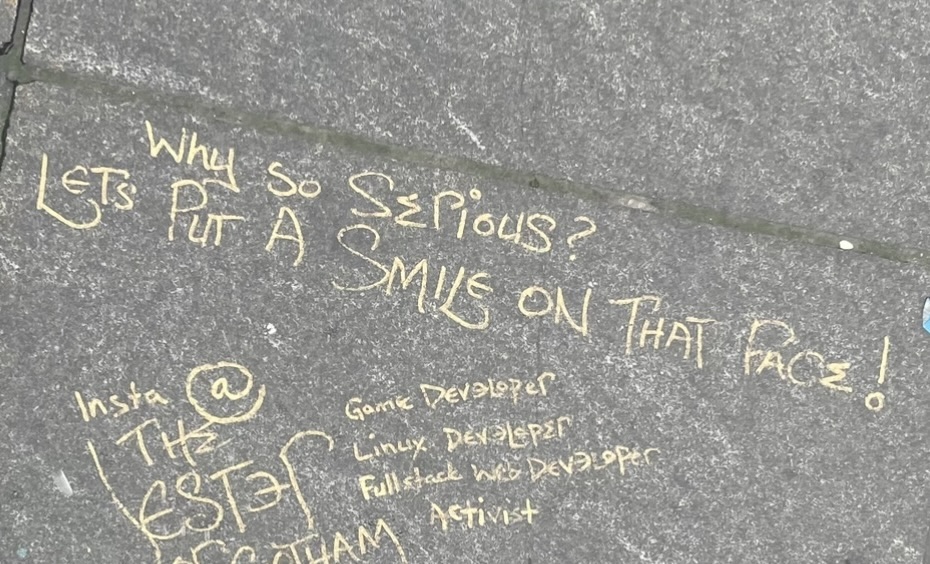 Why So SERiOUS?
LETS PUT A SMILE ON THAT FACE!
Insta @
THE
JESTER
OF GOTHAM
Game Developer
Linux Developer
Fullstack Web Developer
Activist